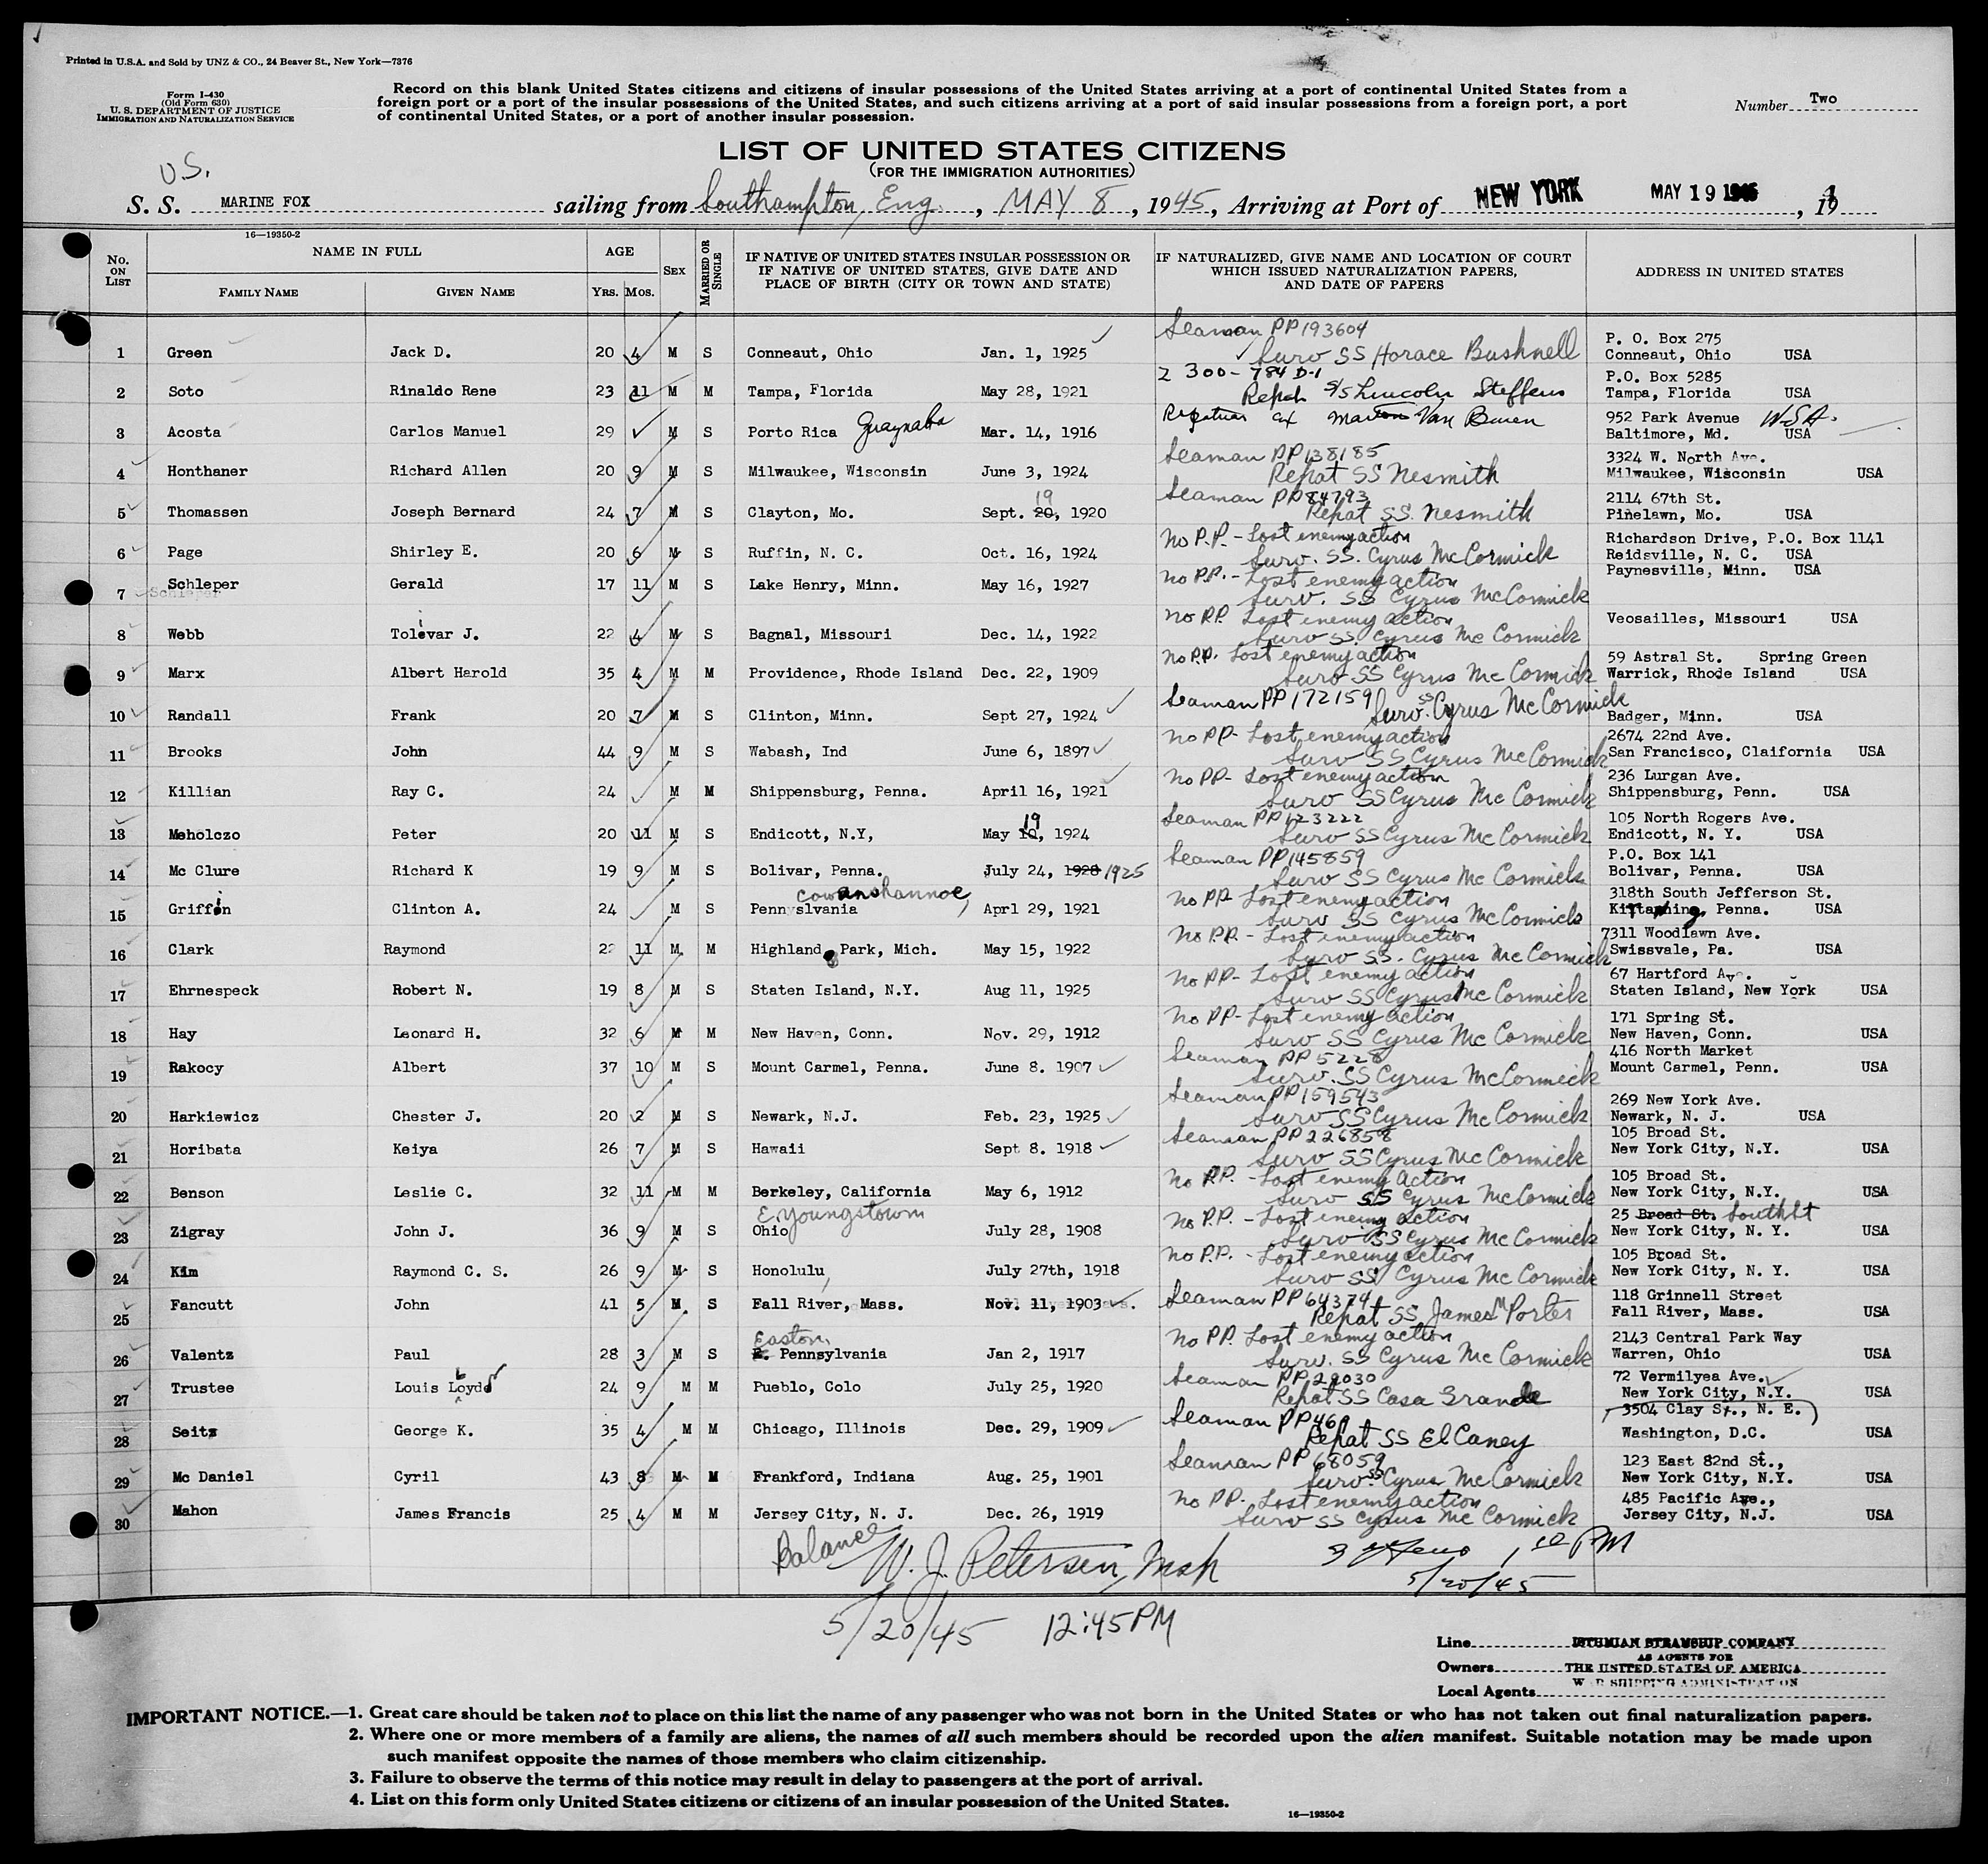 Printed in U.S.A. and Sold by UNZ & CO., 24 Beaver St., New York—7376
Form I-430
(Old Form 630)
U. S. DEPARTMENT OF JUSTICE
IMMIGRATION AND NATURALIZATION SERVICE
Record on this blank United States citizens and citizens of insular possessions of the United States arriving at a port of continental United States from a
foreign port or a port of the insular possessions of the United States, and such citizens arriving at a port of said insular possessions from a foreign port, a port
of continental United States, or a port of another insular possession.
Number Two
LIST OF UNITED STATES CITIZENS
(FOR THE IMMIGRATION AUTHORITIES)
U.S.
S. S. MARINE FOX sailing from Southampton, Eng., MAY 8, 1945, Arriving at Port of NEW YORK MAY 19 1945, 19
16—19350-2
No. ON LIST
NAME IN FULL
FAMILY NAME GIVEN NAME
AGE
YRS. MOS.
SEX
MARRIED OR SINGLE
IF NATIVE OF UNITED STATES INSULAR POSSESSION OR
IF NATIVE OF UNITED STATES, GIVE DATE AND
PLACE OF BIRTH (CITY OR TOWN AND STATE)
IF NATURALIZED, GIVE NAME AND LOCATION OF COURT
WHICH ISSUED NATURALIZATION PAPERS,
AND DATE OF PAPERS
ADDRESS IN UNITED STATES
Seaman PP 193604 P. O. Box 275
1 Green Jack D. 20 4 M S Conneaut, Ohio Jan. 1, 1925 Surv SS Horace Bushnell Conneaut, Ohio USA
Z 300-784 D-1 P.O. Box 5285
2 Soto Rinaldo Rene 23 11 M M Tampa, Florida May 28, 1921 Repat S/S Lincoln Steffens Tampa, Florida USA
Guaynabo Van Buren 952 Park Avenue W.S.A.
3 Acosta Carlos Manuel 29 M S Porto Rica Mar. 14, 1916 Baltimore, Md. USA
Seaman PP 138185 3324 W. North Ave.
4 Honthaner Richard Allen 20 9 M S Milwaukee, Wisconsin June 3, 1924 Repat SS Nesmith Milwaukee, Wisconsin USA
Seaman PP 84793 2114 67th St.
5 Thomassen Joseph Bernard 24 7 M S Clayton, Mo. Sept. 20, 19 1920 Repat SS. Nesmith Pinelawn, Mo. USA
No P.P. - Lost enemy action Richardson Drive, P.O. Box 1141
6 Page Shirley E. 20 6 M S Ruffin, N. C. Oct. 16, 1924 Surv. SS. Cyrus McCormick Reidsville, N. C. USA
No P.P. - Lost enemy action Paynesville, Minn. USA
7 Schleper Gerald 17 11 M S Lake Henry, Minn. May 16, 1927 Surv. SS Cyrus McCormick
No P.P. Lost enemy action Veosailles, Missouri USA
8 Webb Tolivar J. 22 4 M S Bagnal, Missouri Dec. 14, 1922 Surv SS Cyrus McCormick
No P.P. Lost enemy action 59 Astral St. Spring Green
9 Marx Albert Harold 35 4 M M Providence, Rhode Island Dec. 22, 1909 Surv SS Cyrus McCormick Warrick, Rhode Island USA
Seaman PP 172159
10 Randall Frank 20 7 M S Clinton, Minn. Sept 27, 1924 Surv. SS Cyrus McCormick Badger, Minn. USA
No PP- Lost enemy action 2674 22nd Ave.
11 Brooks John 44 9 M S Wabash, Ind June 6, 1897 Surv SS Cyrus McCormick San Francisco, Claifornia USA
No PP- Lost enemy action 236 Lurgan Ave.
12 Killian Ray C. 24 M M Shippensburg, Penna. April 16, 1921 Surv SS Cyrus McCormick Shippensburg, Penn. USA
Seaman PP 123222 105 North Rogers Ave.
13 Meholczo Peter 20 11 M S Endicott, N.Y, May 10, 19 1924 Surv SS Cyrus McCormick Endicott, N. Y. USA
Seaman PP 145859 P.O. Box 141
14 Mc Clure Richard K 19 9 M S Bolivar, Penna. July 24, 1928 1925 Surv SS Cyrus McCormick Bolivar, Penna. USA
Cowanshannoc, No PP Lost enemy action 318th South Jefferson St.
15 Griffin Clinton A. 24 M S Pennyslvania Aprl 29, 1921 Surv SS Cyrus McCormick Kittaning, Penna. USA
No P.P. - Lost enemy action 7311 Woodlawn Ave.
16 Clark Raymond 22 11 M M Highland Park, Mich. May 15, 1922 Surv SS. Cyrus McCormick Swissvale, Pa. USA
No PP- Lost enemy action 67 Hartford Ave.
17 Ehrnespeck Robert N. 19 8 M S Staten Island, N.Y. Aug 11, 1925 Surv SS Cyrus McCormick Staten Island, New York USA
No PP- Lost enemy action 171 Spring St.
18 Hay Leonard H. 32 6 M M New Haven, Conn. Nov. 29, 1912 Surv SS Cyrus McCormick New Haven, Conn. USA
Seaman PP 5228 416 North Market
19 Rakocy Albert 37 10 M S Mount Carmel, Penna. June 8. 1907 Surv. SS Cyrus McCormick Mount Carmel, Penn. USA
Seaman PP 159543 269 New York Ave.
20 Harkiewicz Chester J. 20 2 M S Newark, N.J. Feb. 23, 1925 Surv SS Cyrus McCormick Newark, N. J. USA
Seaman PP 226858 105 Broad St.
21 Horibata Keiya 26 7 M S Hawaii Sept 8. 1918 Surv SS Cyrus McCormick New York City, N.Y. USA
No P.P. - Lost enemy action 105 Broad St.
22 Benson Leslie C. 32 11 M M Berkeley, California May 6, 1912 Surv SS Cyrus McCormick New York City, N.Y. USA
E. Youngstown No P.P. - Lost enemy action 25 Broad St. South St
23 Zigray John J. 36 9 M S Ohio July 28, 1908 Surv SS Cyrus McCormick New York City, N. Y. USA
No P.P. - Lost enemy action 105 Broad St.
24 Kim Raymond C. S. 26 9 M S Honolulu, July 27th, 1918 Surv SS Cyrus McCormick New York City, N. Y. USA
Seaman PP 64374 118 Grinnell Street
25 Fancutt John 41 5 M S Fall River, Mass. Nov. 11, 1903 Repat SS James M Porter Fall River, Mass. USA
Easton, No PP. Lost enemy action 2143 Central Park Way
26 Valentz Paul 28 3 M S Pennsylvania Jan 2, 1917 Surv. SS Cyrus McCormick Warren, Ohio USA
Seaman PP 29030 72 Vermilyea Ave.
27 Trustee Louis Loyd 24 9 M M Pueblo, Colo July 25, 1920 Repat SS Casa Grande New York City, N.Y. USA
Seaman PP 3504 Clay St., N. E.
28 Seitz George K. 35 4 M M Chicago, Illinois Dec. 29, 1909 Repat SS El Caney Washington, D.C. USA
Seaman PP 68059 123 East 82nd St.,
29 Mc Daniel Cyril 43 8 M M Frankford, Indiana Aug. 25, 1901 Surv. SS Cyrus McCormick New York City, N.Y. USA
No PP- Lost enemy action 485 Pacific Ave.,
30 Mahon James Francis 25 4 M M Jersey City, N. J. Dec. 26, 1919 Surv SS Cyrus McCormick Jersey City, N.J. USA
Balance W. J. Petersen, Insp PM
5/20/45
5/20/45 12:45PM
Line ISTHMIAN STEAMSHIP COMPANY
AS AGENTS FOR
Owners THE UNITED STATES OF AMERICA
WAR SHIPPING ADMINISTRATION
Local Agents
IMPORTANT NOTICE.—1. Great care should be taken not to place on this list the name of any passenger who was not born in the United States or who has not taken out final naturalization papers.
2. Where one or more members of a family are aliens, the names of all such members should be recorded upon the alien manifest. Suitable notation may be made upon
such manifest opposite the names of those members who claim citizenship.
3. Failure to observe the terms of this notice may result in delay to passengers at the port of arrival.
4. List on this form only United States citizens or citizens of an insular possession of the United States.
16—19350-2